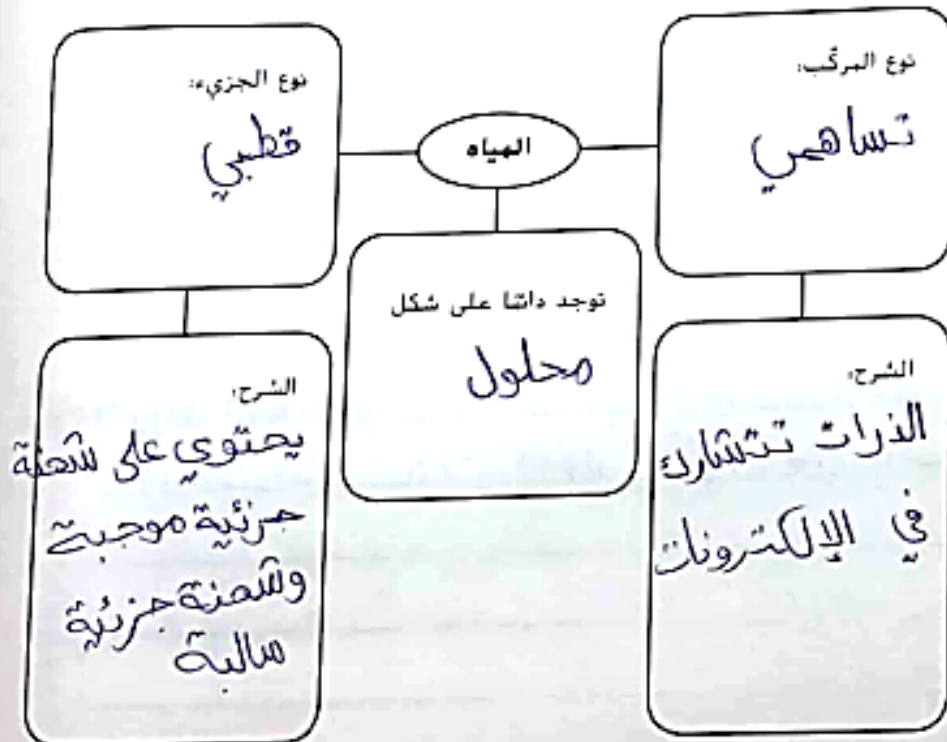 نوع المركّب:
تساهمي
الشرح:
الذرات تتشارك
في الإلكترونات
المياه
توجد دائمًا على شكل
محلول
نوع الجزيء:
قطبي
الشرح:
يحتوي على شحنة
جزئية موجبة
وشحنة جزئية
سالبة